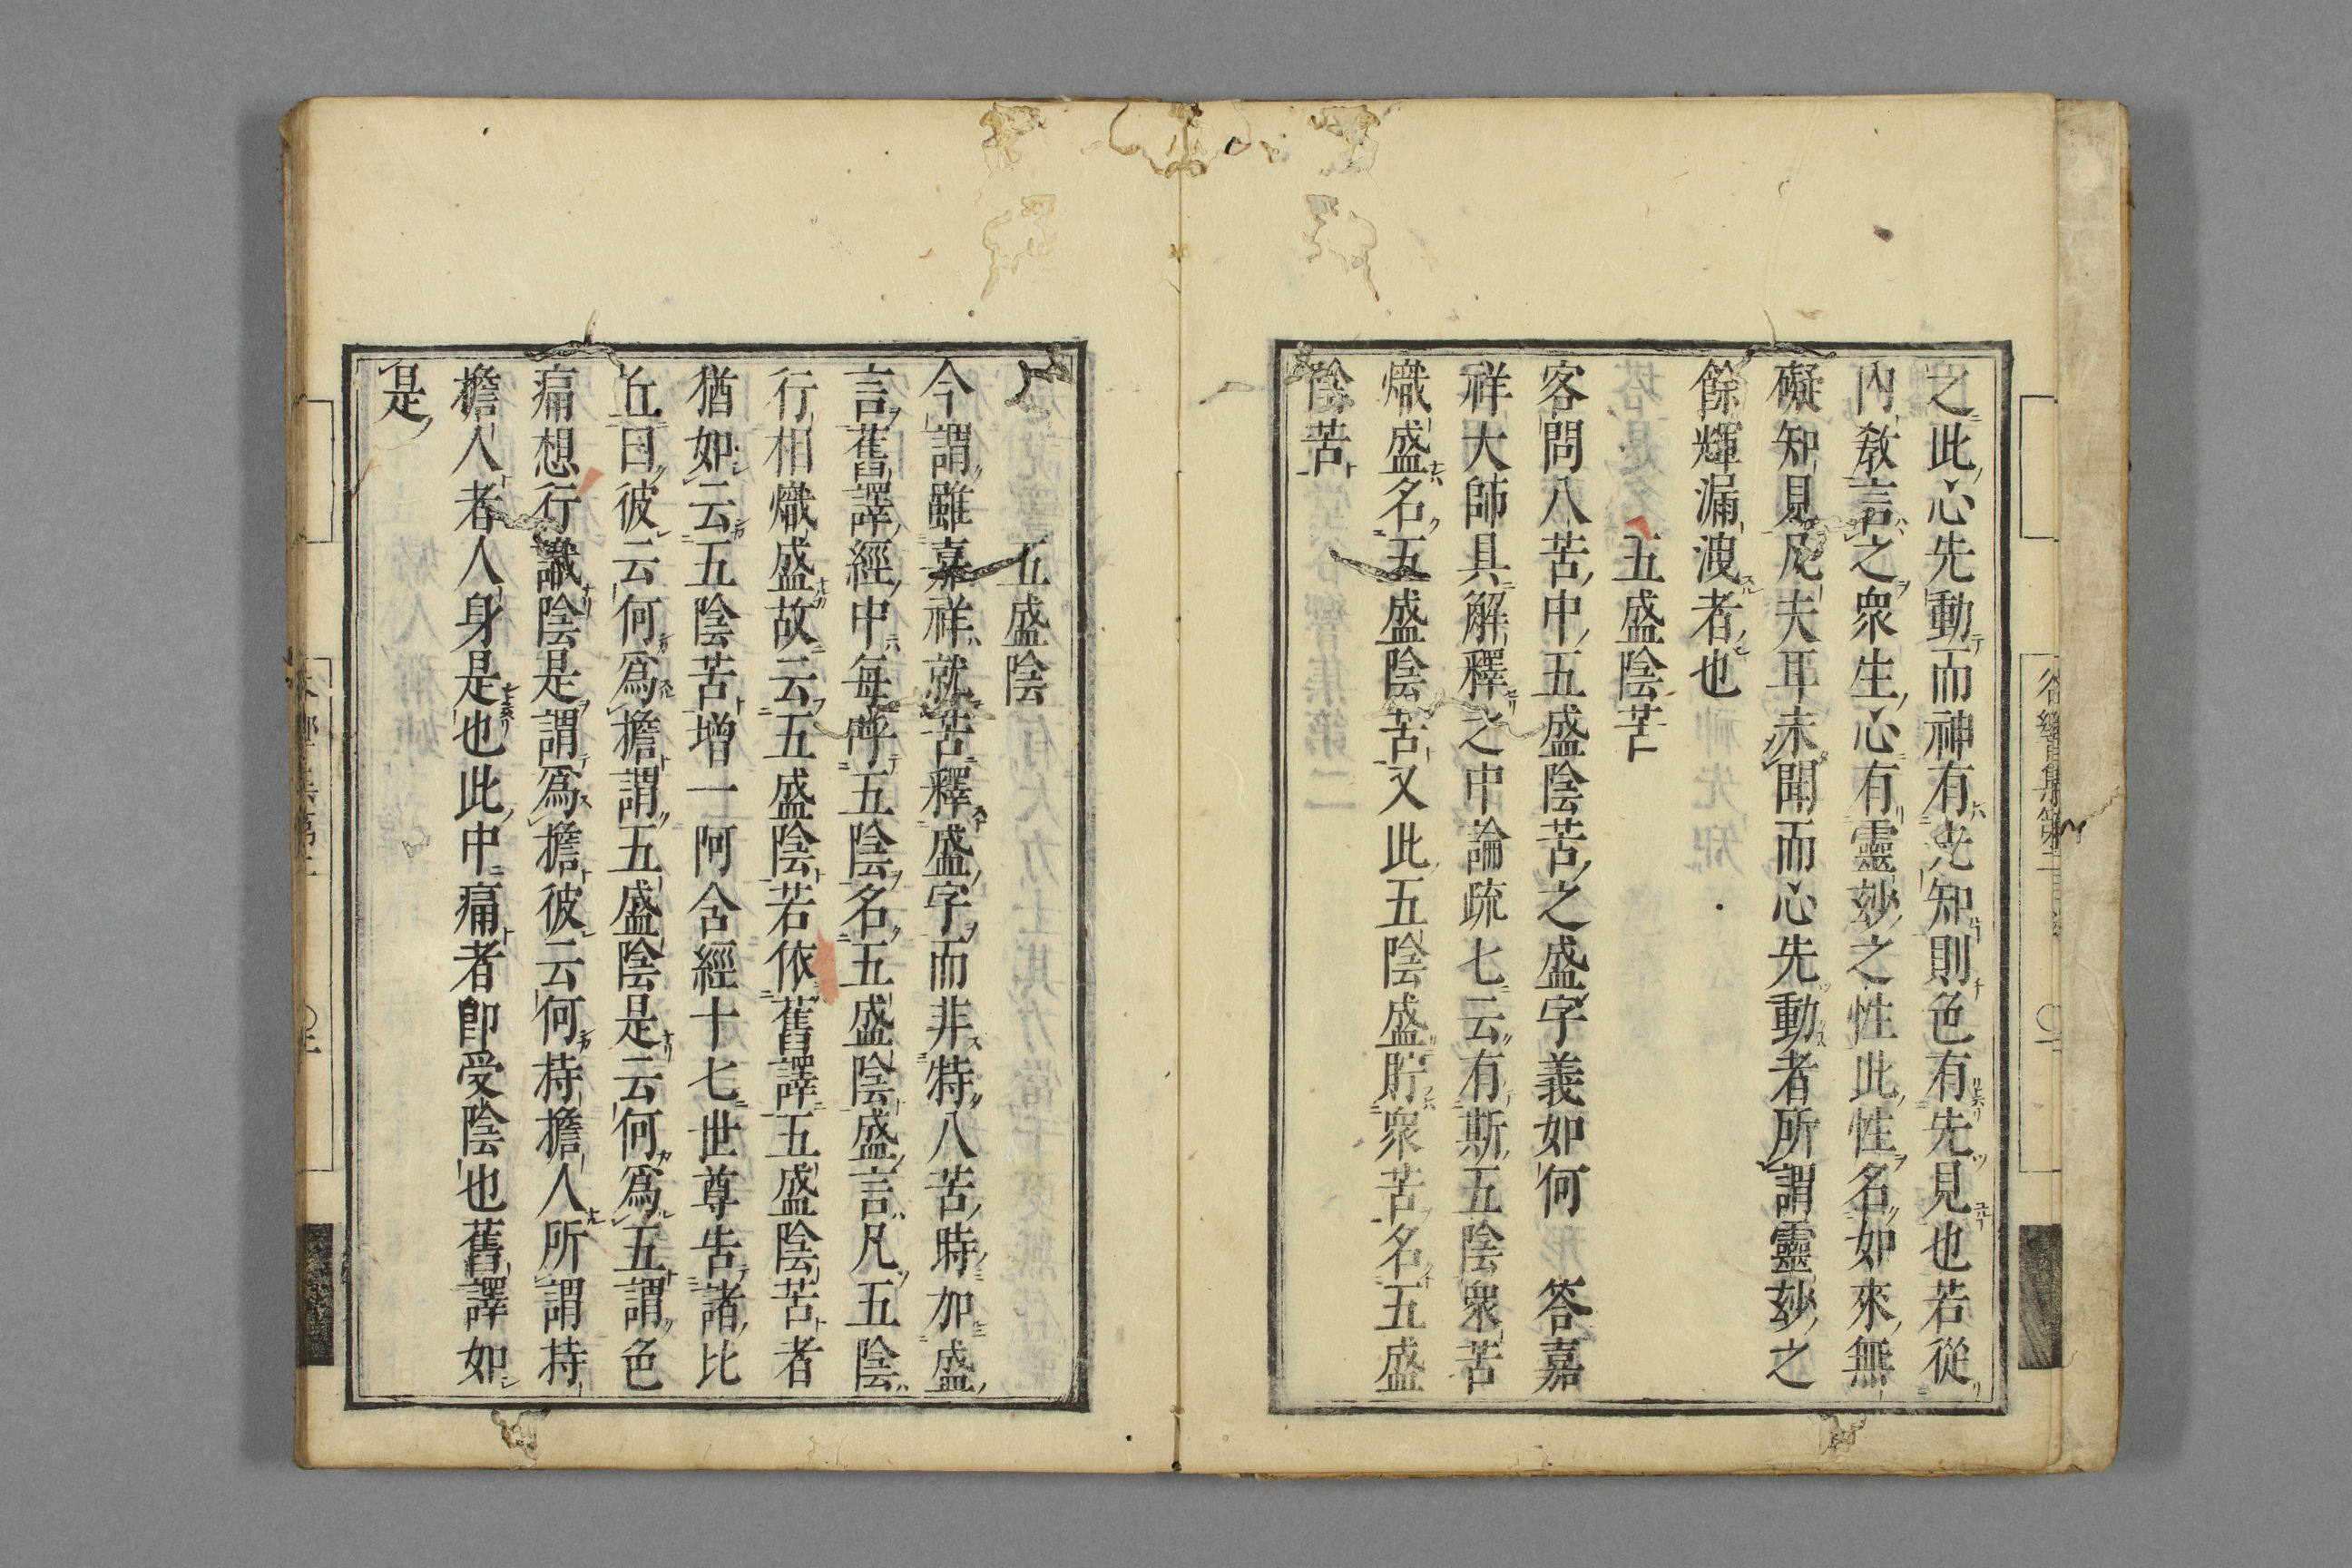 之此心先動而神有光知則色有先見也若從
內教言之衆生心有靈妙之性此性名如來無
礙知見凡夫耳未聞而心先動者所謂靈妙之
餘輝漏洩者也
五盛陰苦
客問八苦中五盛陰苦之盛字義如何 答嘉
祥大師具解釋之中論疏七云有斯五陰衆苦
熾盛名五盛陰苦又此五陰盛貯衆苦名五盛
陰苦
五盛陰
今謂雖嘉祥就苦釋盛字而非特八苦時加盛
言舊譯經中每呼五陰名五盛陰盛言凡五陰
行相熾盛故云五盛陰若依舊譯五盛陰苦者
猶如云五陰苦增一阿含經十七世尊告諸比
丘曰彼云何爲擔謂五盛陰是云何爲五謂色
痛想行識陰是謂爲擔彼云何持擔人所謂持
擔人者人身是也此中痛者卽受陰也舊譯如
是
谷響集第二